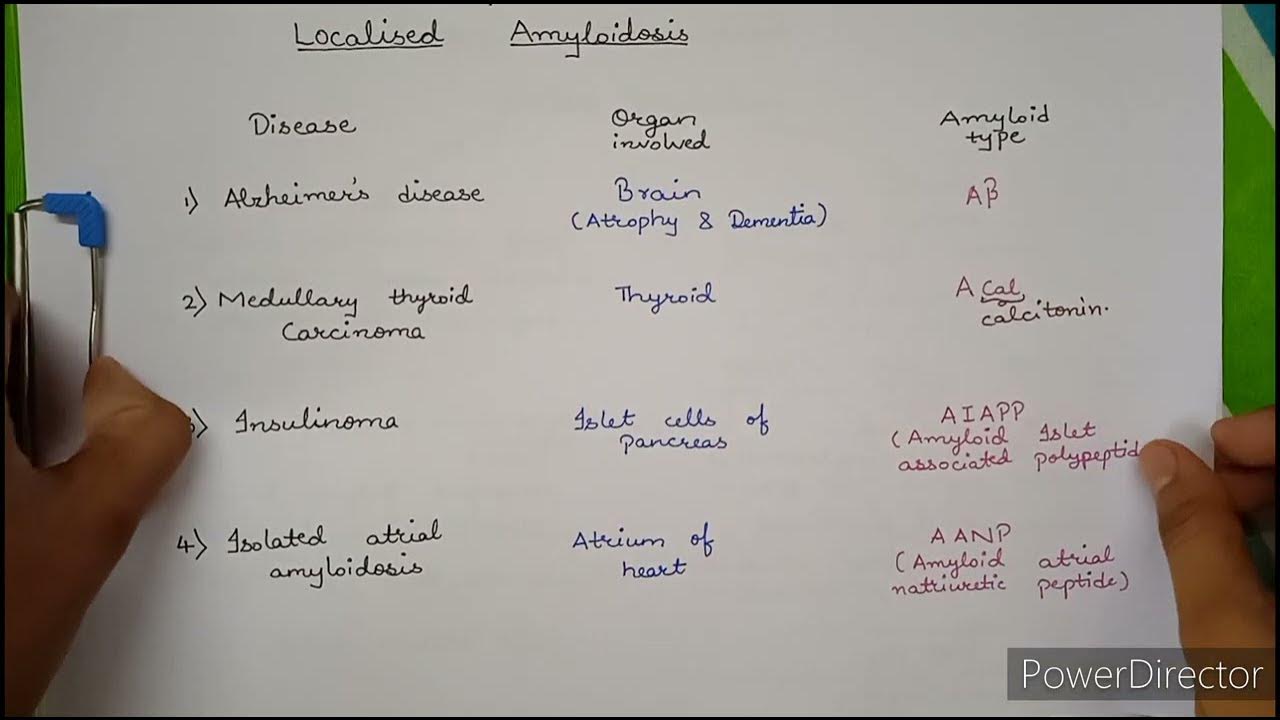 Localised Amyloidosis
Disease Organ involved Amyloid type
1) Alzheimer's disease Brain (Atrophy & Dementia) Aβ
2) Medullary thyroid Carcinoma Thyroid A Cal calcitonin.
) Insulinoma Islet cells of Pancreas AIAPP (Amyloid Islet associated polypeptid
4) Isolated atrial amyloidosis Atrium of heart AANP (Amyloid atrial natriuretic peptide)
PowerDirector